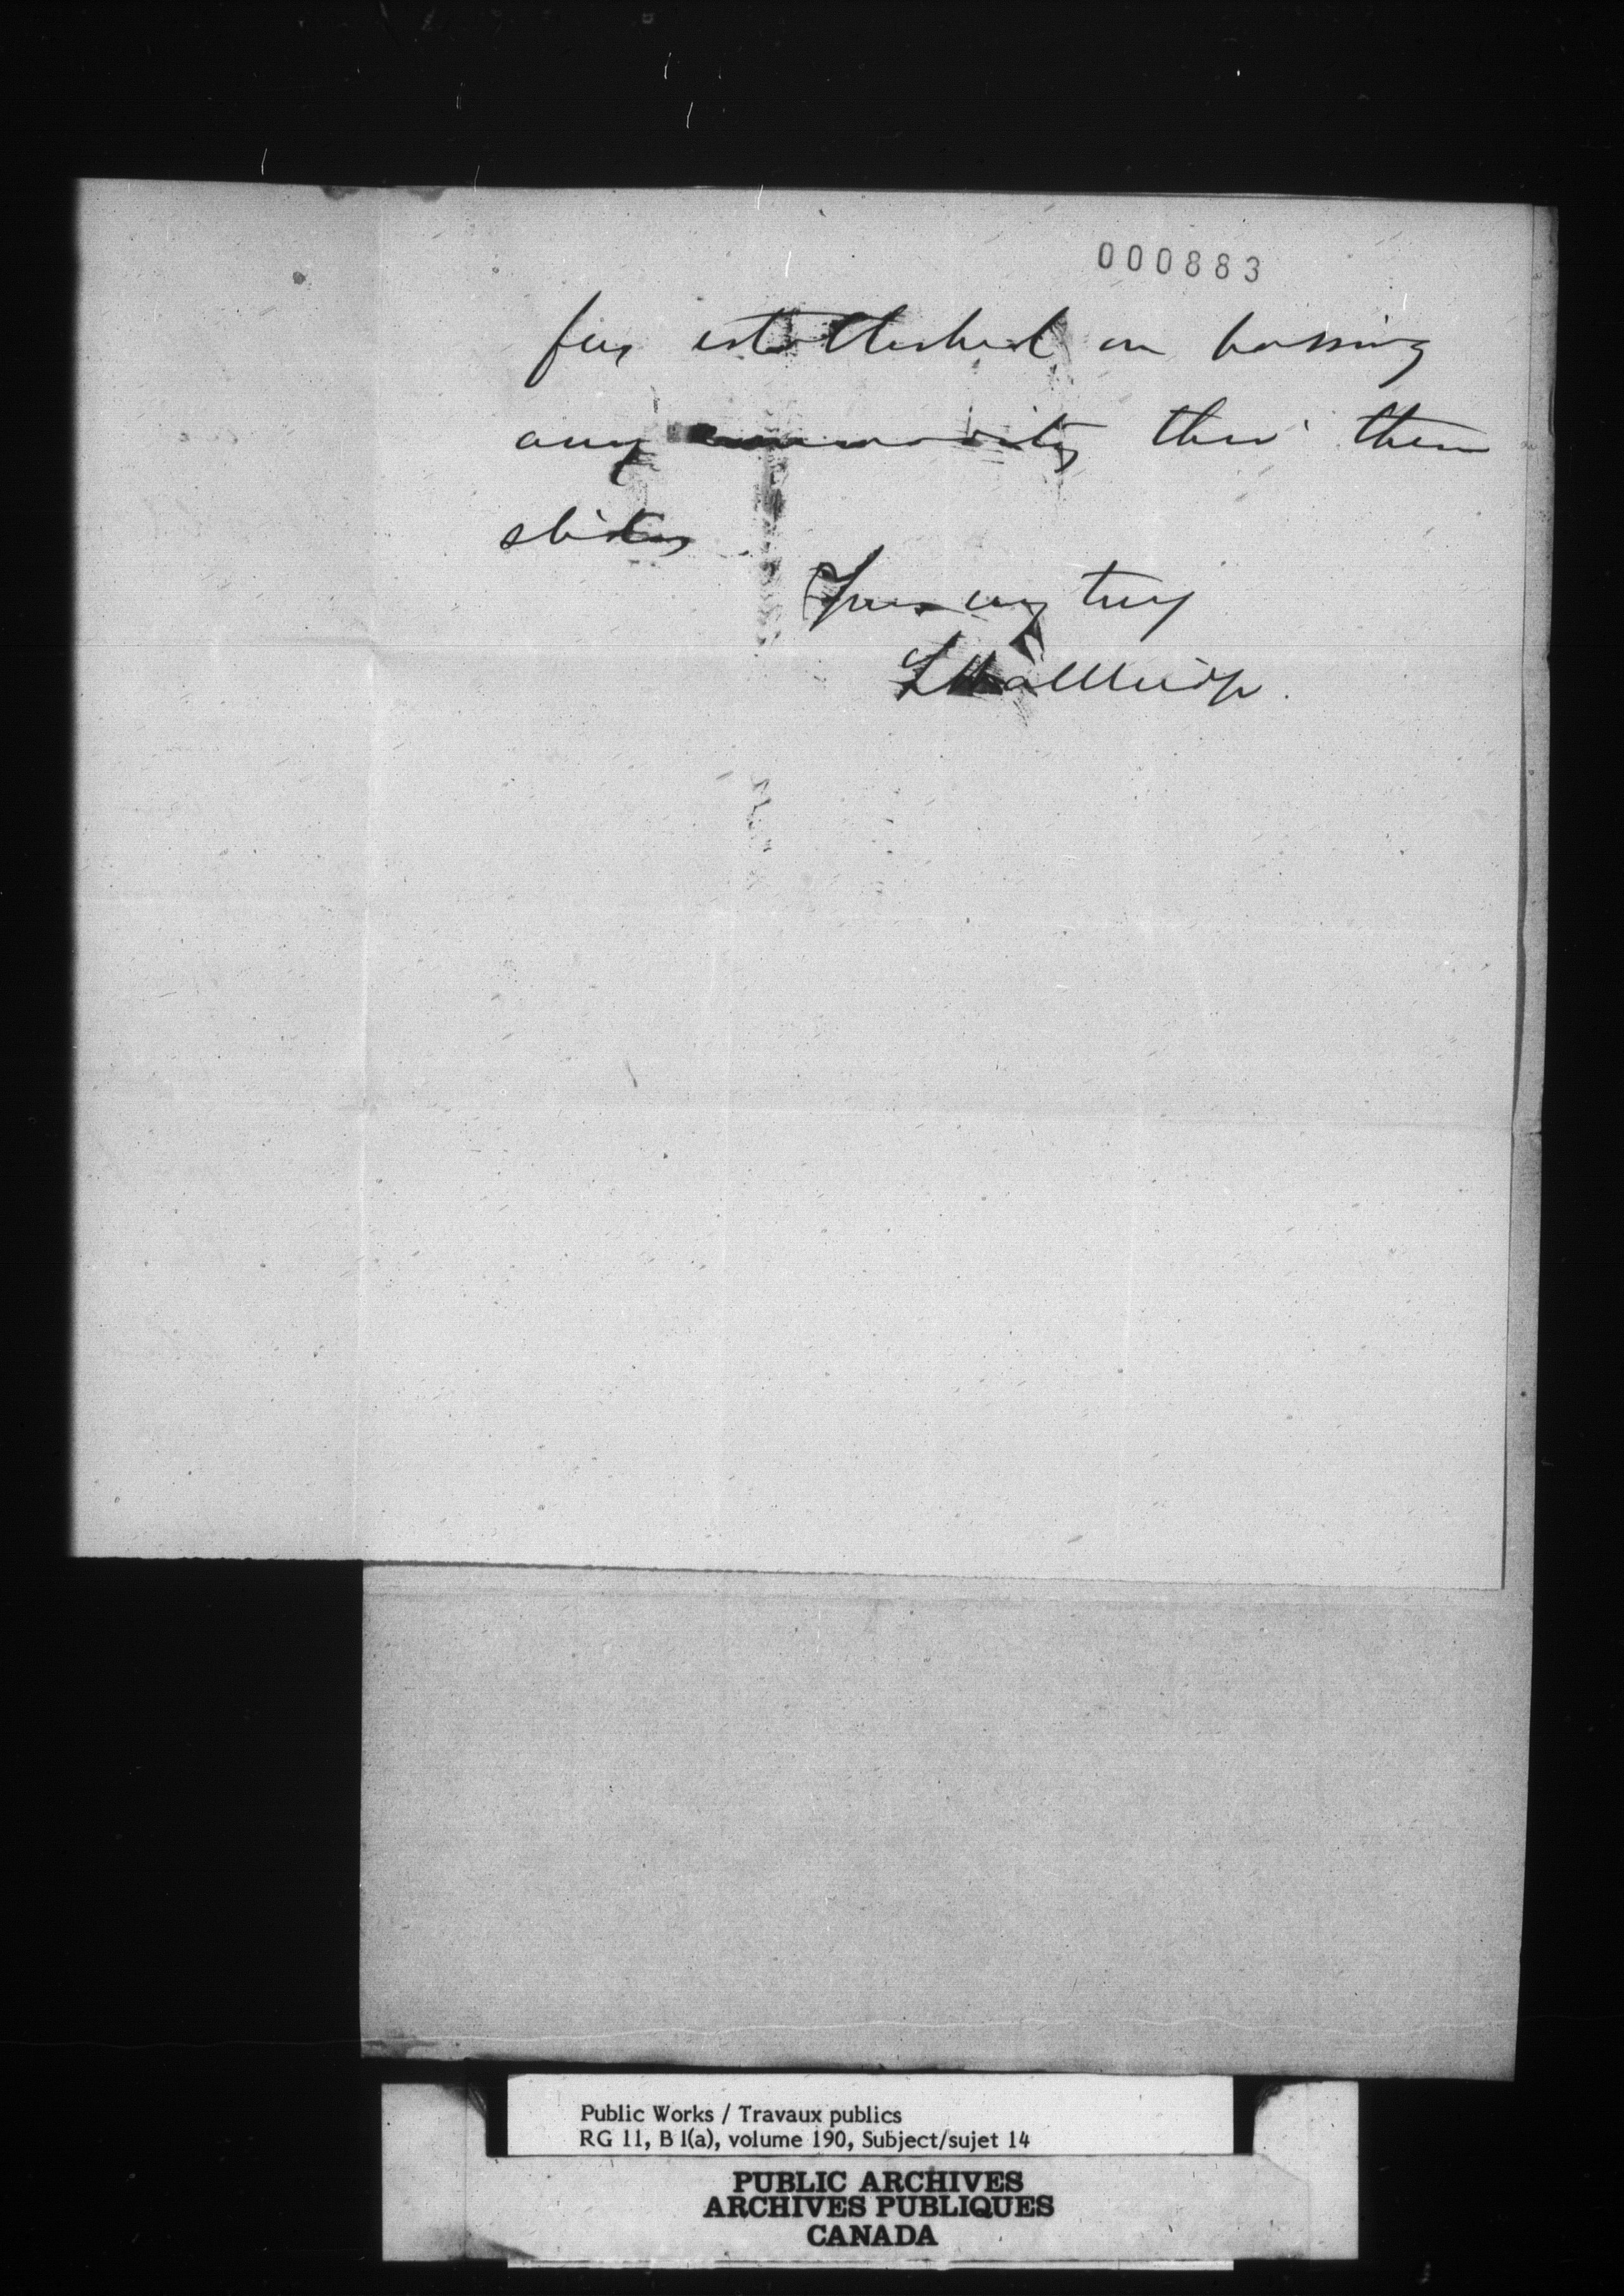 000883
fees established on passing
any commodity thro' these
slides
Yours very truly
L Wallbridge.
Public Works / Travaux publics
RG 11, B 1(a), volume 190, Subject/sujet 14
PUBLIC ARCHIVES
ARCHIVES PUBLIQUES
CANADA